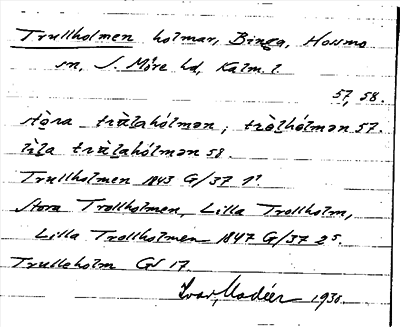 Trullholmen holmar, Binga, Hossmo
sn, S. Möre hd, Kalm. l.
57, 58.
stora trålahólmən; trålhólmən 57.
lila trålahólmən 58.
Trullholmen 1843 G/37 1?
Stora Trollholmen, Lilla Trollholm,
Lilla Trollholmen 1847 G/37 25.
Trulleholm GS 17.
Ivar Modéer 1930.